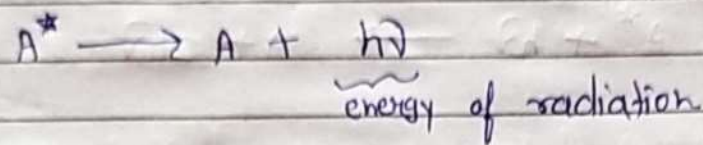 A* ⟶ A + hν
energy of radiation